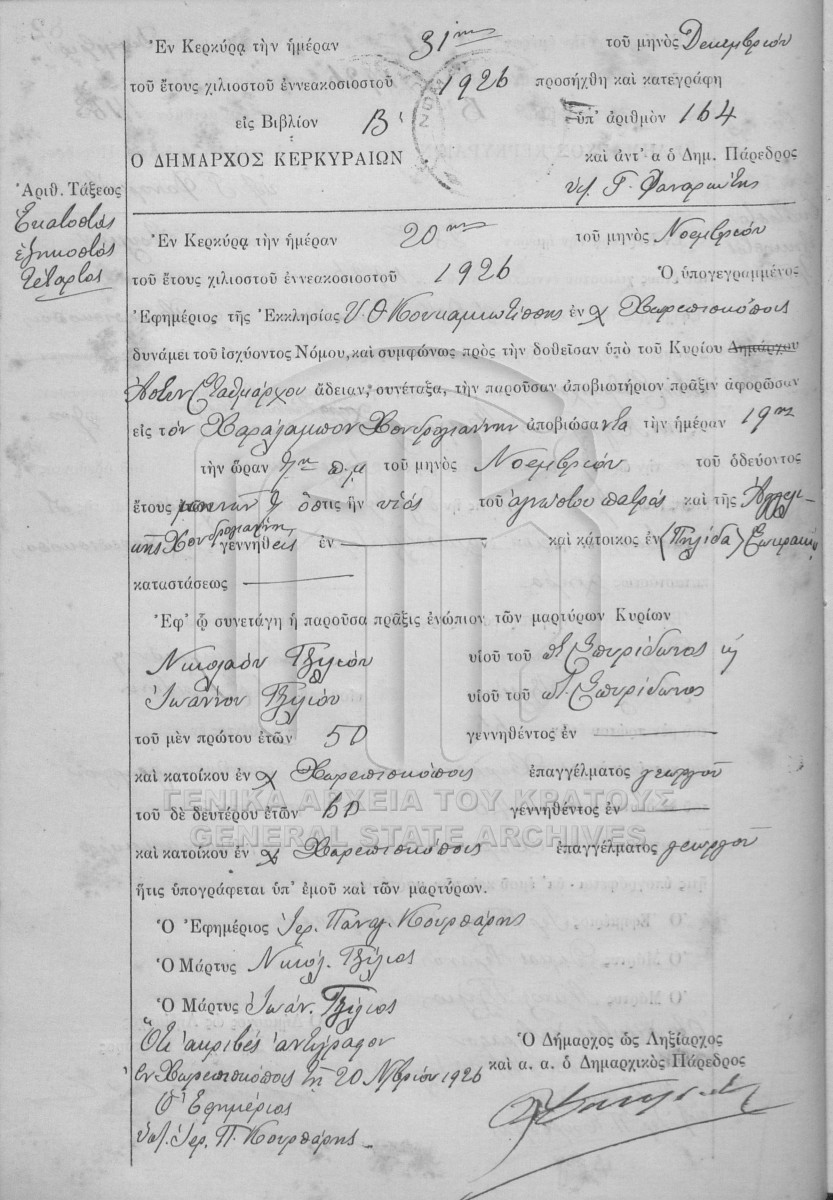 Ἐν Κερκύρᾳ τὴν ἡμέραν 31ην τοῦ μηνὸς Δεκεμβρίου
τοῦ ἔτους χιλιοστοῦ ἐννεακοσιοστοῦ 1926 προσήχθη καὶ κατεγράφη
εἰς Βιβλίον Β' ὑπ' ἀριθμὸν 164
Ο ΔΗΜΑΡΧΟΣ ΚΕΡΚΥΡΑΙΩΝ καὶ ἀντ' α ὁ Δημ. Πάρεδρος
Ἀριθ. Τάξεως
Ἑκατοστός
ἑξηκοστός
τέταρτος
Ἐν Κερκύρᾳ τὴν ἡμέραν 20ην τοῦ μηνὸς Νοεμβρίου
τοῦ ἔτους χιλιοστοῦ ἐννεακοσιοστοῦ 1926 Ὁ ὑπογεγραμμένος
Ἐφημέριος τῆς Ἐκκλησίας Υ. Θ. ἐν χ Χωρεπισκόποις
δυνάμει τοῦ ἰσχύοντος Νόμου, καὶ συμφώνως πρὸς τὴν δοθεῖσαν ὑπὸ τοῦ Κυρίου Δημάρχου
Ἀστυν. Σταθμάρχου ἄδειαν, συνέταξα, τὴν παροῦσαν ἀποβιωτήριον πρᾶξιν ἀφορῶσαν
εἰς τὸν Χαράλαμπον Χονδρογιάννην ἀποβιώσαντα τὴν ἡμέραν 19ην
τὴν ὥραν 7ην π.μ τοῦ μηνὸς Νοεμβρίου τοῦ ὁδεύοντος
ἔτους μηνῶν ὅστις ἦν υἱός τοῦ ἀγνώστου πατρός καὶ τῆς Ἀγγελι-
κῆς Χονδρογιάννη γεννηθείς ἐν — καὶ κάτοικος ἐν (Πηλίδα)
καταστάσεως —
Ἐφ' ᾧ συνετάγη ἡ παροῦσα πρᾶξις ἐνώπιον τῶν μαρτύρων Κυρίων
Νικολάου Τζίλιου υἱοῦ τοῦ π. Σπυρίδωνος κ
Ἰωάννου Τζίλιου υἱοῦ τοῦ π. Σπυρίδωνος
τοῦ μὲν πρώτου ἐτῶν 50 γεννηθέντος ἐν —
καὶ κατοίκου ἐν χ Χωρεπισκόποις ἐπαγγέλματος γεωργοῦ
ΓΕΝΙΚΑ ΑΡΧΕΙΑ ΤΟΥ ΚΡΑΤΟΥΣ
τοῦ δὲ δευτέρου ἐτῶν 60 γεννηθέντος ἐν —
GENERAL STATE ARCHIVES
καὶ κατοίκου ἐν χ Χωρεπισκόποις ἐπαγγέλματος γεωργοῦ
ἥτις ὑπογράφεται ὑπ' ἐμοῦ καὶ τῶν μαρτύρων.
Ὁ Ἐφημέριος Ἱερ. Παναγ. Κουρπάρης
Ὁ Μάρτυς Νικόλ. Τζίλιος
Ὁ Μάρτυς Ἰωάν. Τζίλιος
Ὅτι ἀκριβές ἀντίγραφον
Ἐν Χωρεπισκόποις τῇ 20 Νβρίου 1926
Ὁ Ἐφημέριος
Υπ. Ἱερ. Π. Κουρπάρης
Ὁ Δήμαρχος ὡς Ληξίαρχος
καὶ α. α. ὁ Δημαρχικὸς Πάρεδρος